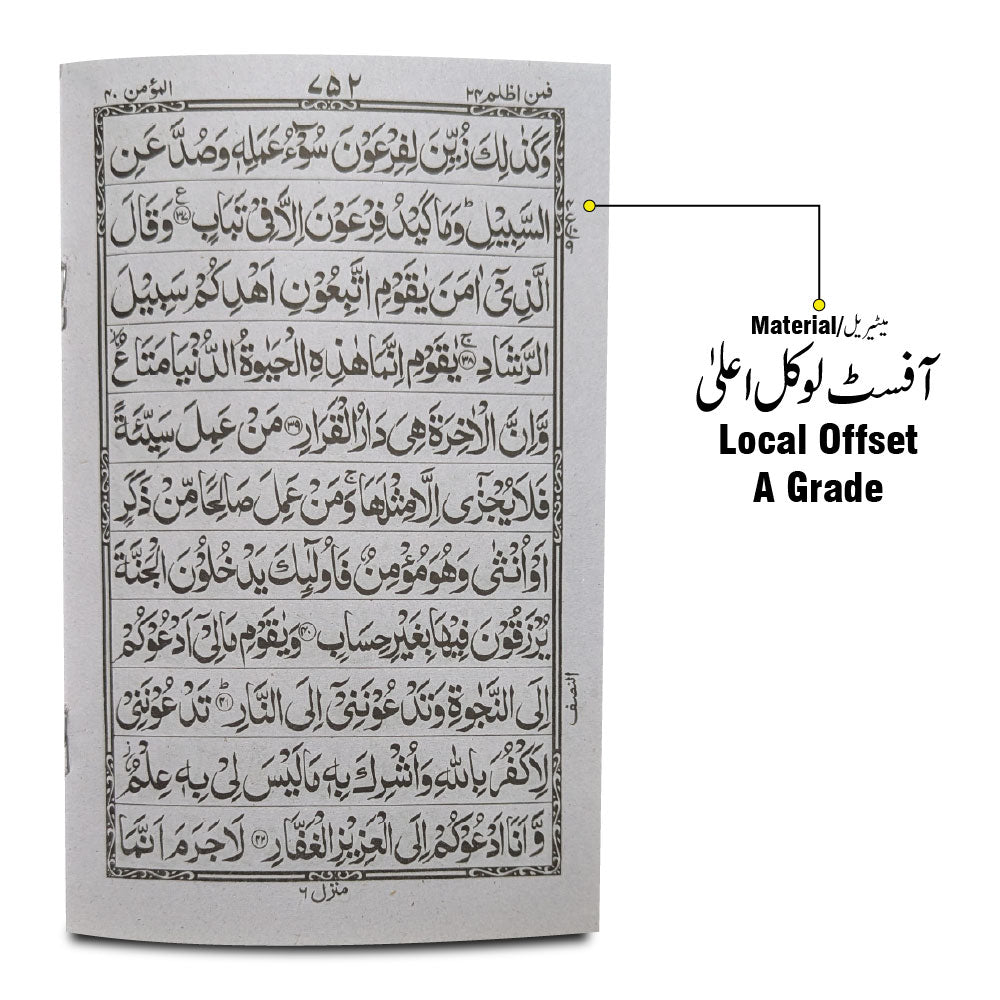 المؤمن ۴۰ ۷۵۲ فمن اظلم ۲۴
وَكَذٰلِكَ زُيِّنَ لِفِرْعَوْنَ سُوْٓءُ عَمَلِهٖ وَصُدَّ عَنِ
السَّبِيْلِ ؕ وَمَا كَيْدُ فِرْعَوْنَ اِلَّا فِيْ تَبَابٍ ﴿۳۷﴾ ع وَقَالَ
الَّذِيْٓ اٰمَنَ يٰقَوْمِ اتَّبِعُوْنِ اَهْدِكُمْ سَبِيْلَ
الرَّشَادِ ﴿۳۸﴾ ۚ يٰقَوْمِ اِنَّمَا هٰذِهِ الْحَيٰوةُ الدُّنْيَا مَتَاعٌ ؗ
وَّاِنَّ الْاٰخِرَةَ هِيَ دَارُ الْقَرَارِ ﴿۳۹﴾ مَنْ عَمِلَ سَيِّئَةً
فَلَا يُجْزٰٓى اِلَّا مِثْلَهَا ۚ وَمَنْ عَمِلَ صَالِحًا مِّنْ ذَكَرٍ
اَوْ اُنْثٰى وَهُوَ مُؤْمِنٌ فَاُولٰٓئِكَ يَدْخُلُوْنَ الْجَنَّةَ
يُرْزَقُوْنَ فِيْهَا بِغَيْرِ حِسَابٍ ﴿۴۰﴾ وَيٰقَوْمِ مَا لِيْٓ اَدْعُوْكُمْ
اِلَى النَّجٰوةِ وَتَدْعُوْنَنِيْٓ اِلَى النَّارِ ﴿۴۱﴾ ؕ تَدْعُوْنَنِيْ
لِاَكْفُرَ بِاللّٰهِ وَاُشْرِكَ بِهٖ مَا لَيْسَ لِيْ بِهٖ عِلْمٌ ؗ
وَّاَنَا اَدْعُوْكُمْ اِلَى الْعَزِيْزِ الْغَفَّارِ ﴿۴۲﴾ لَا جَرَمَ اَنَّمَا
النصف
منزل ۶
Material/میٹیریل
آفسٹ لوکل اعلیٰ
Local Offset
A Grade